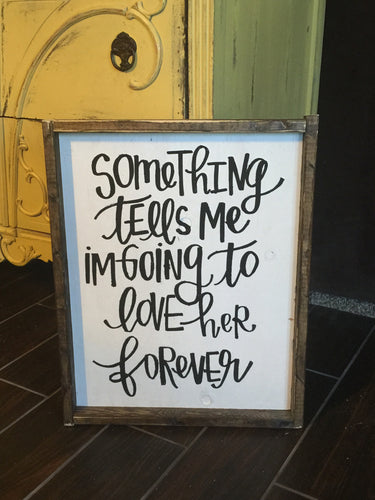 SOMETHING
tells me
iM GOING to
LOVE her
forever